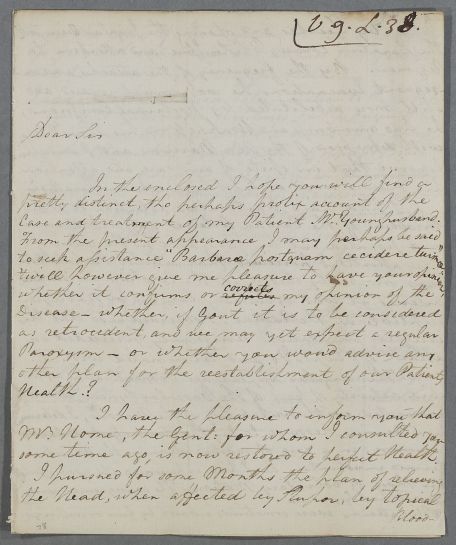 V 9. L. 38.
Dear Sir
In the enclosed I hope you will find a
pretty distinct, tho' perhaps prolix account of the
Case and treatment of my Patient Mr. Younghusband.
From the present appearance I may perhaps be said
to seek assistance "Barbara postquam cecidere turmæ"
'twill however give me pleasure to have your opinion,
whether it confirms or corrects my opinion of the
Disease — whether, if Gout it is to be considered
as retrocedent, and we may yet expect a regular
Paroxysm — or whether you would advise any
other plan for the reestablishment of our Patient's
Health?
I have the pleasure to inform you that
Mr. Home, the Gent: for whom I consulted you
some time ago, is now restored to perfect Health.
I pursued for some Months the plan of relieving
the Head, when affected by Stupor, by topical
Blood-
78